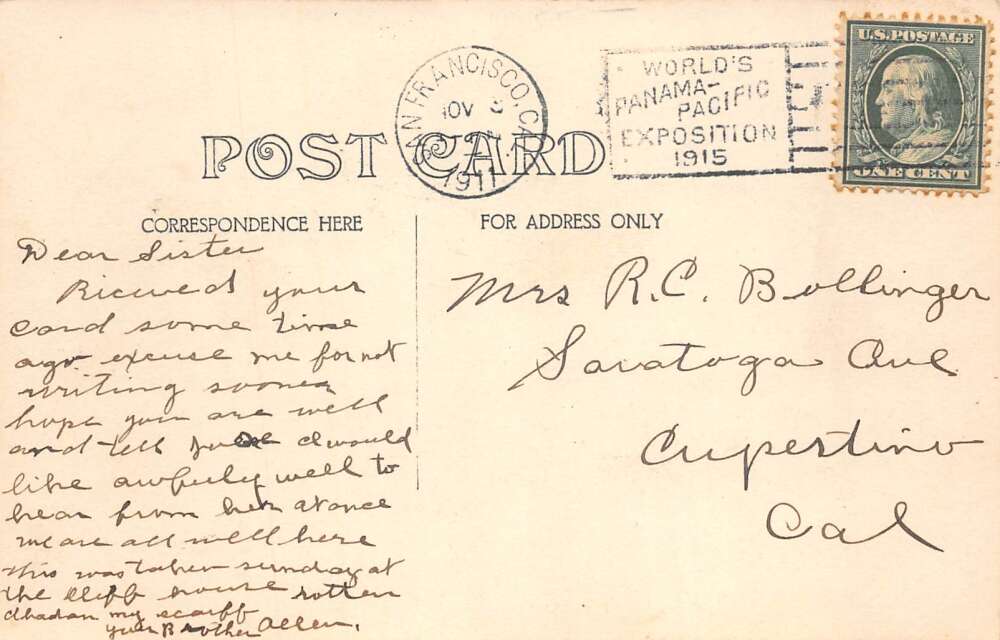 U.S. POSTAGE
ONE CENT
SAN FRANCISCO, CAL.
NOV
1911
WORLD'S
PANAMA-
PACIFIC
EXPOSITION
1915
POST CARD
CORRESPONDENCE HERE
FOR ADDRESS ONLY
Dear Sister
Ricieved your
card some time
ago excuse me for not
writing sooner
hope you are well
and tell I would
like awfuly well to
hear from her at once
we are all well here
this was taken sunday at
the Cliff house rotten
I had on my scarff
your Brother Allen.
Mrs R.C. Bollinger
Saratoga Ave
Cupertino
Cal